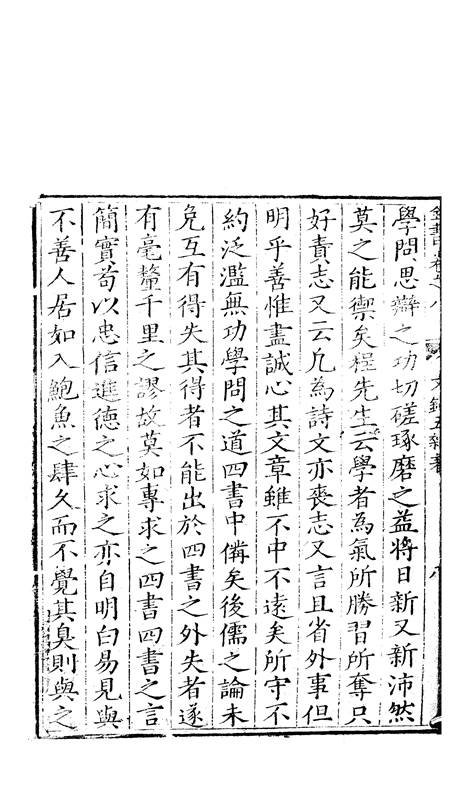 全書卷之八 文錄五雜著 八
學問思辯之功切磋琢磨之益將日新又新沛然
莫之能禦矣程先生云學者為氣所勝習所奪只
好責志又云凡為詩文亦喪志又言且省外事但
明乎善惟盡誠心其文章雖不中不遠矣所守不
約泛濫無功學問之道四書中備矣後儒之論未
免互有得失其得者不能出於四書之外失者遂
有毫釐千里之謬故莫如專求之四書四書之言
簡實苟以忠信進德之心求之亦自明白易見與
不善人居如入鮑魚之肆久而不覺其臭則與之